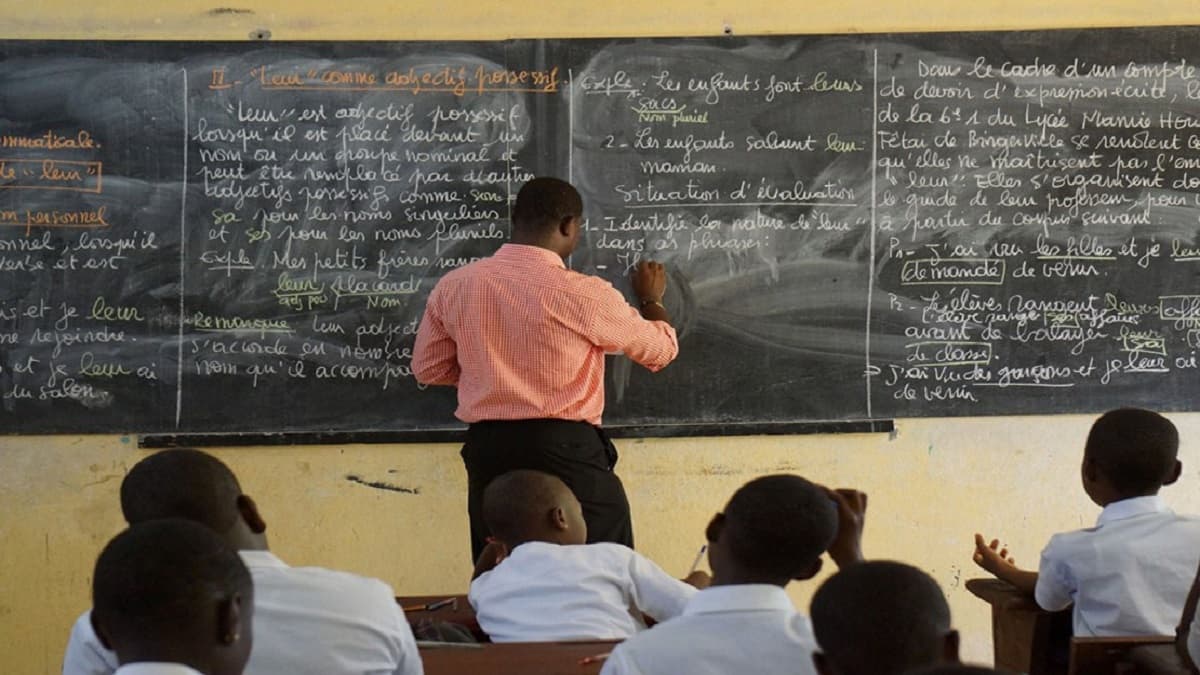 mmaticale.
de "leur"
m personnel
onnel, lorsqu'il
verbe et est
is et je leur
me rejoindre.
et je leur ai
du salon.
II - "Leur" comme adjectif possessif
"Leur" est adjectif possessif
lorsqu'il est placé devant un
nom ou un groupe nominal et
peut être remplacé par d'autres
adjectifs possessifs comme: son
sa pour les noms singuliers
et ses pour les noms pluriels.
Exple. Mes petits frères
leur placard
adj pos Nom.
Remarque leur adject
s'accorde en nombre
nom qu'il accompa
Exple 1. Les enfants font leurs
sacs
Nom pluriel
2 - Les enfants saluent leur
maman.
Situation d'évaluation
1 - Identifie la nature de "leur"
dans ces phrases:
Dans le cadre d'un compte
de devoir d'expression écrite, l
de la 6e 1 du Lycée Mamie
Fêtai de Bingerville se rendent
qu'elles ne maîtrisent pas l'
"leur". Elles s'organisent
le guide de leur professeur, pour
à partir du corpus suivant:
P1 - J'ai vu les filles et je leur
demandé de venir.
P2 - Les élèves rangent leurs
l'élève range ses affaires
avant de balayer leur
sa
de classe.
J'ai vu des garçons et je leur ai
de venir.